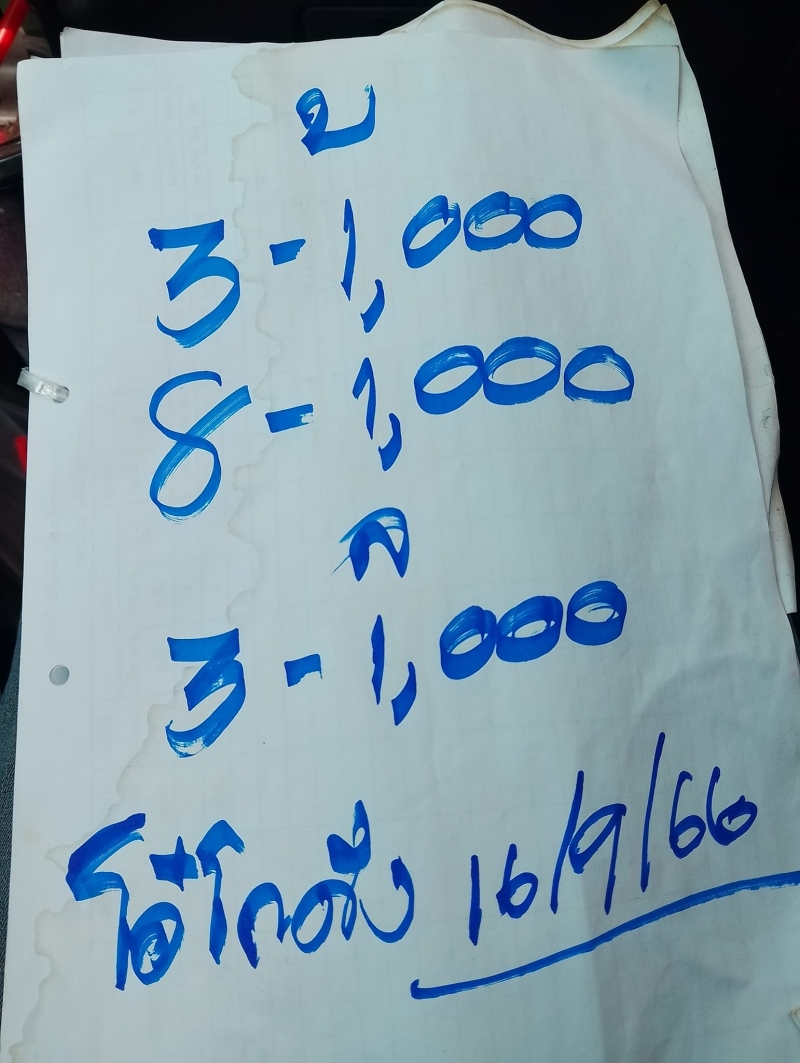 บ
3 - 1,000
8 - 1,000
ล
3 - 1,000
โอ๋โกอึ่ง 16/9/66